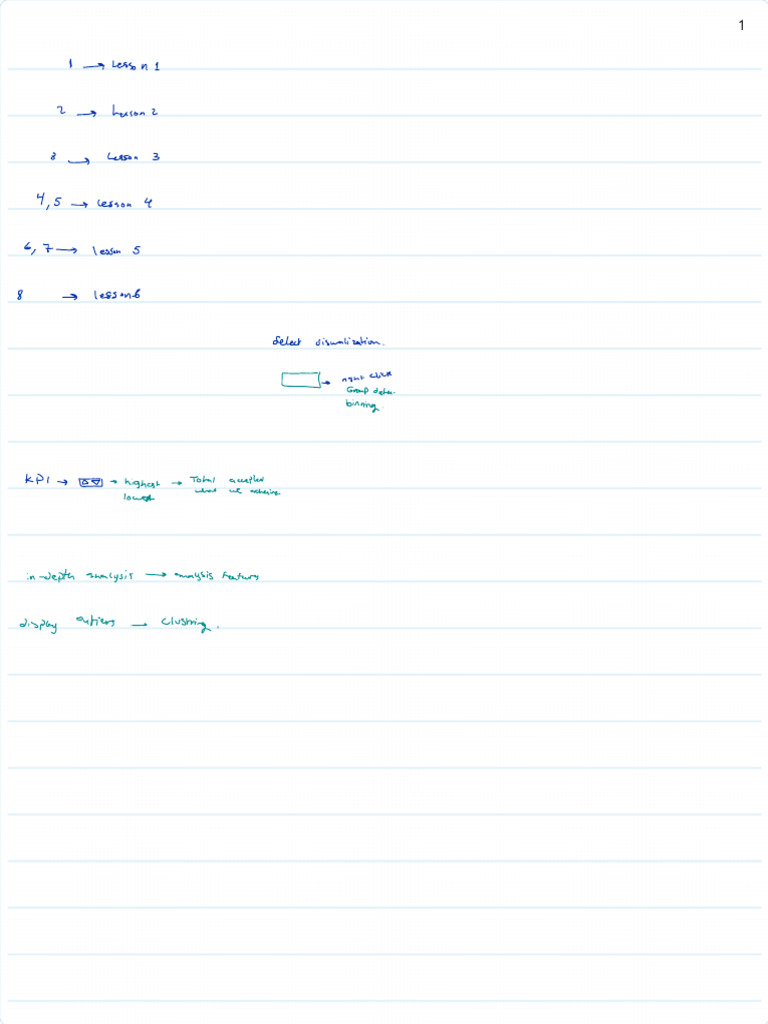 1
1 → Lesson 1
2 → Lesson 2
3 → Lesson 3
4, 5 → Lesson 4
6, 7 → lesson 5
8 → lesson 6
Select visualization.
→ right click
Group data.
binning
KPI → → highest → Total
lowest what we
in-depth analysis → analysis features
display → clustring.